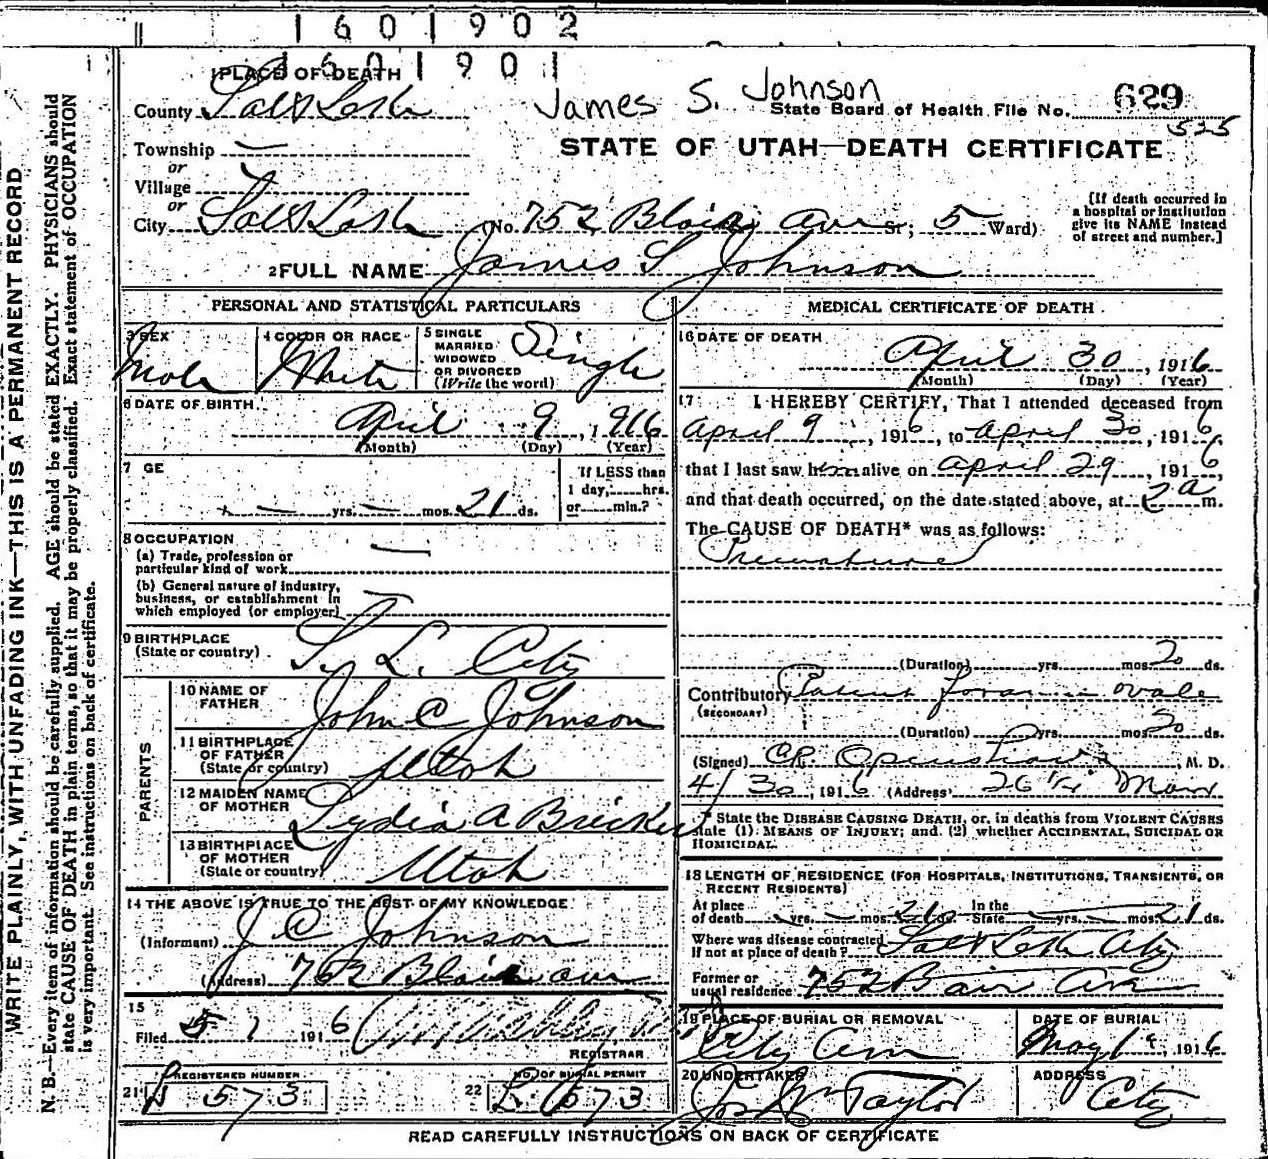 1601902
1601901
1 PLACE OF DEATH
James S. Johnson
County Salt Lake
State Board of Health File No. 629
525
Township —
or
Village
or
STATE OF UTAH—DEATH CERTIFICATE
City Salt Lake (No. 752 Blair Ave St; 5 Ward)
[If death occurred in
a hospital or institution
give its NAME instead
of street and number.]
2 FULL NAME James S Johnson
PERSONAL AND STATISTICAL PARTICULARS
3 SEX
Male
4 COLOR OR RACE
White
5 SINGLE
MARRIED
WIDOWED
OR DIVORCED
(Write the word)
Single
6 DATE OF BIRTH
April 9, 1916
(Month) (Day) (Year)
7 GE
— yrs. — mos. 21 ds.
If LESS than
1 day, hrs.
or min.?
8 OCCUPATION
(a) Trade, profession or
particular kind of work —
(b) General nature of industry,
business, or establishment in
which employed (or employer)
9 BIRTHPLACE
(State or country) S. L. City
PARENTS
10 NAME OF
FATHER John C Johnson
11 BIRTHPLACE
OF FATHER
(State or country) Utah
12 MAIDEN NAME
OF MOTHER Lydia A
13 BIRTHPLACE
OF MOTHER
(State or country) Utah
14 THE ABOVE IS TRUE TO THE BEST OF MY KNOWLEDGE
(Informant) J C Johnson
(Address) 752 Blair ave
15
Filed 5/1 1916
REGISTRAR
21 REGISTERED NUMBER
573
22 NO. OF BURIAL PERMIT
673
MEDICAL CERTIFICATE OF DEATH
16 DATE OF DEATH
April 30, 1916
(Month) (Day) (Year)
17 I HEREBY CERTIFY, That I attended deceased from
April 9, 1916, to April 30, 1916,
that I last saw him alive on April 29, 1916,
and that death occurred, on the date stated above, at 2 a m.
The CAUSE OF DEATH* was as follows:
Premature
(Duration) yrs. mos. 20 ds.
Contributory Patent foramen ovale
(SECONDARY)
(Duration) yrs. mos. 20 ds.
(Signed) Openshaw, M. D.
4/30, 1916 (Address) Main
* State the DISEASE CAUSING DEATH, or, in deaths from VIOLENT CAUSES
state (1) MEANS OF INJURY; and (2) whether ACCIDENTAL, SUICIDAL OR
HOMICIDAL.
18 LENGTH OF RESIDENCE (FOR HOSPITALS, INSTITUTIONS, TRANSIENTS, OR
RECENT RESIDENTS)
At place
of death — yrs. — mos. 21 ds.
In the
State — yrs. — mos. 21 ds.
Where was disease contracted
if not at place of death? Salt Lake City
Former or
usual residence 752 Blair Ave
19 PLACE OF BURIAL OR REMOVAL
City Cem
DATE OF BURIAL
May 1, 1916
20 UNDERTAKER
Jos Wm Taylor
ADDRESS
City
READ CAREFULLY INSTRUCTIONS ON BACK OF CERTIFICATE
WRITE PLAINLY, WITH UNFADING INK—THIS IS A PERMANENT RECORD
N. B.—Every item of information should be carefully supplied. AGE should be stated EXACTLY. PHYSICIANS should
state CAUSE OF DEATH in plain terms, so that it may be properly classified. Exact statement of OCCUPATION
is very important. See instructions on back of certificate.